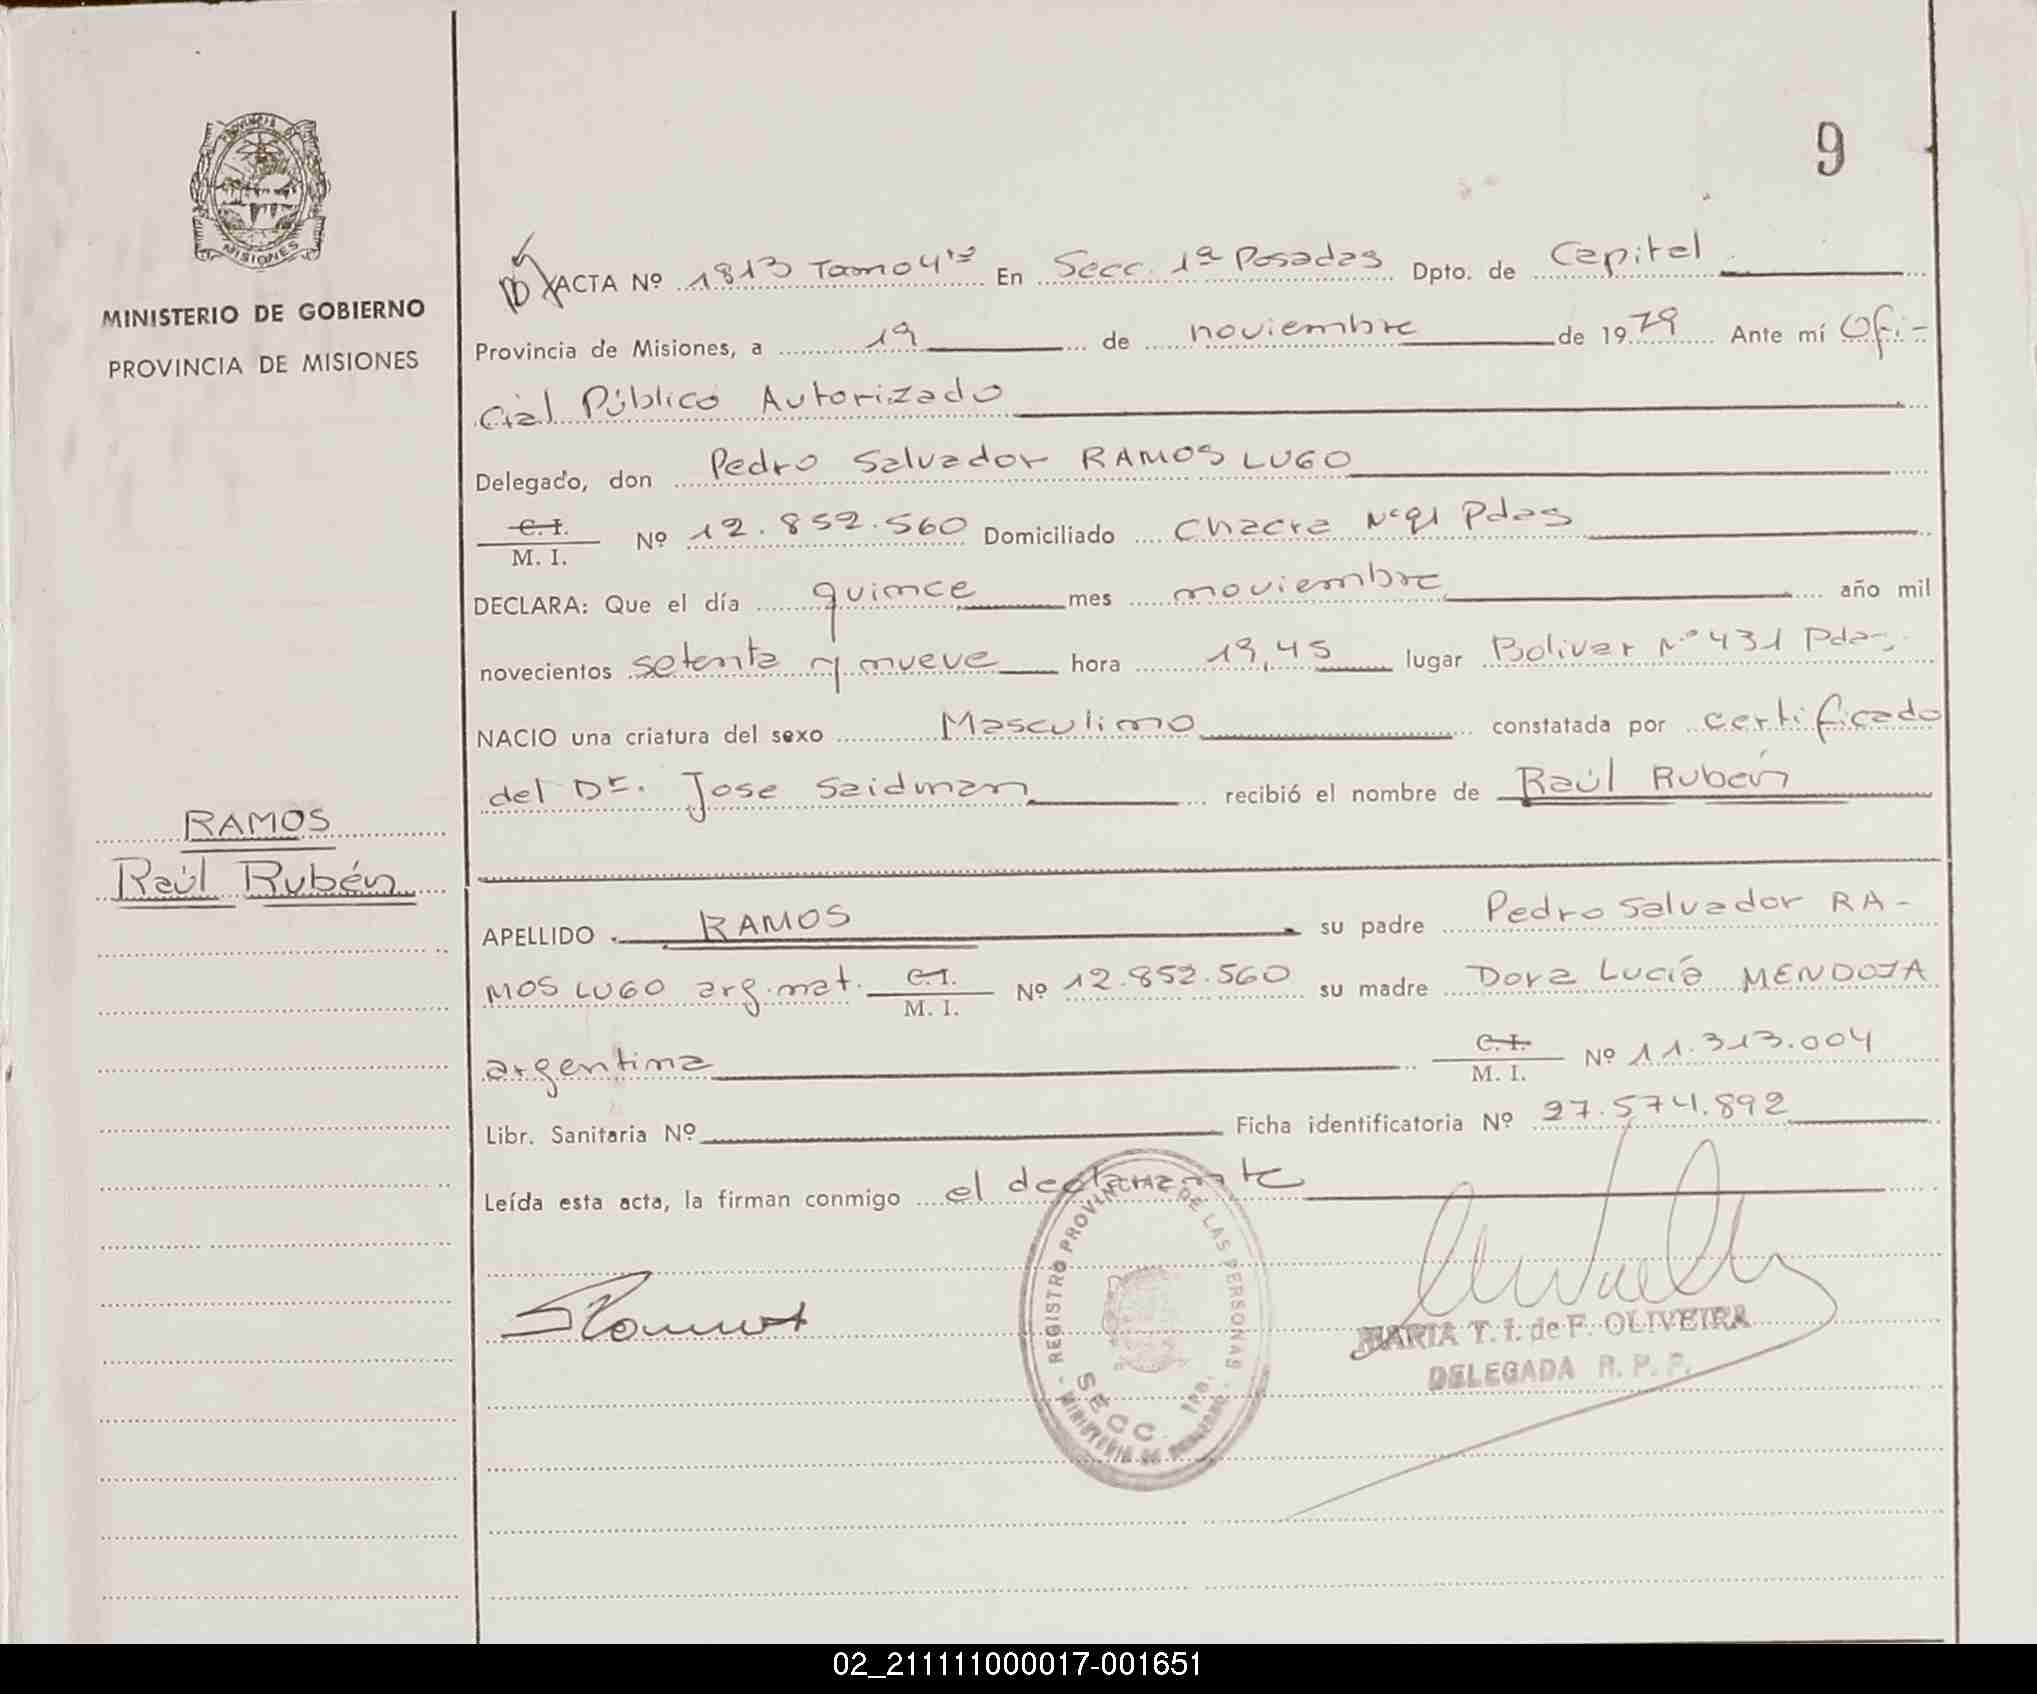 9
PROVINCIA DE
MISIONES
MINISTERIO DE GOBIERNO
PROVINCIA DE MISIONES
ACTA Nº 1813 Tomo 4to En Secc. 1ª Posadas Dpto. de Capital
Provincia de Misiones, a 19 de noviembre de 1979 Ante mí Ofi-
cial Público Autorizado
Delegado, don Pedro Salvador RAMOS LUGO
C. I.
M. I. Nº 12.852.560 Domiciliado Chacra Nº 91 Pdas
DECLARA: Que el día quince mes noviembre año mil
novecientos setenta y nueve hora 19,45 lugar Bolivar Nº 431 Pdas.
NACIO una criatura del sexo Masculino constatada por certificado
del Dr. Jose Saidman recibió el nombre de Raúl Rubén
RAMOS
Raúl Rubén
APELLIDO RAMOS su padre Pedro Salvador RA-
MOS LUGO arg. nat. C. I.
M. I. Nº 12.852.560 su madre Dora Lucía MENDOZA
argentina C. I.
M. I. Nº 11.313.004
Libr. Sanitaria Nº Ficha identificatoria Nº 27.574.892
Leída esta acta, la firman conmigo el declarante
REGISTRO PROVINCIAL DE LAS PERSONAS
SECC. 1ra.
MINISTERIO DE GOBIERNO
MARIA T. I. de F. OLIVEIRA
DELEGADA R. P. P.
02_211111000017-001651